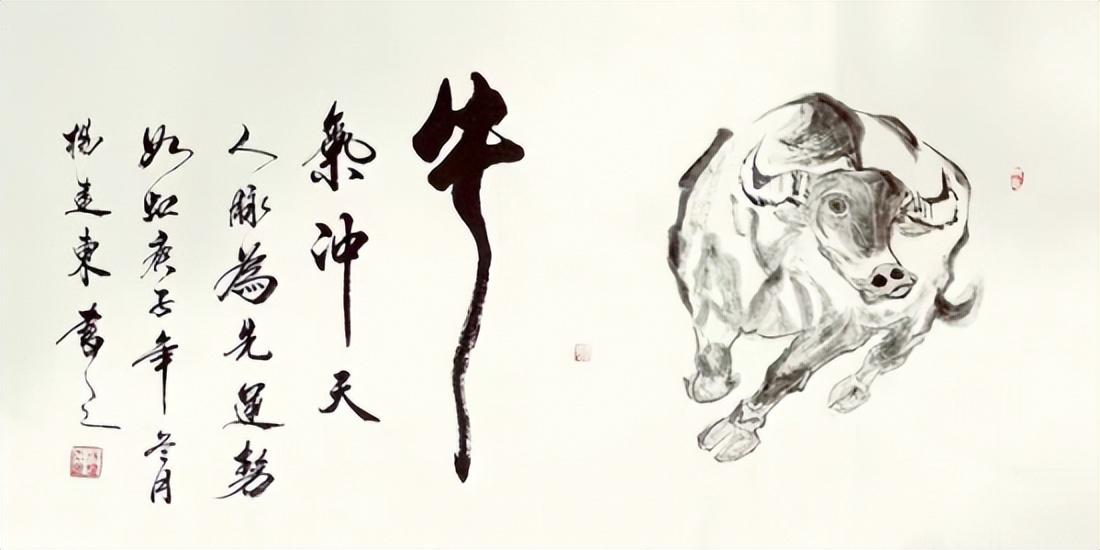 牛
氣冲天
人脉為先運勢
如虹庚子年冬月
楊建東書之